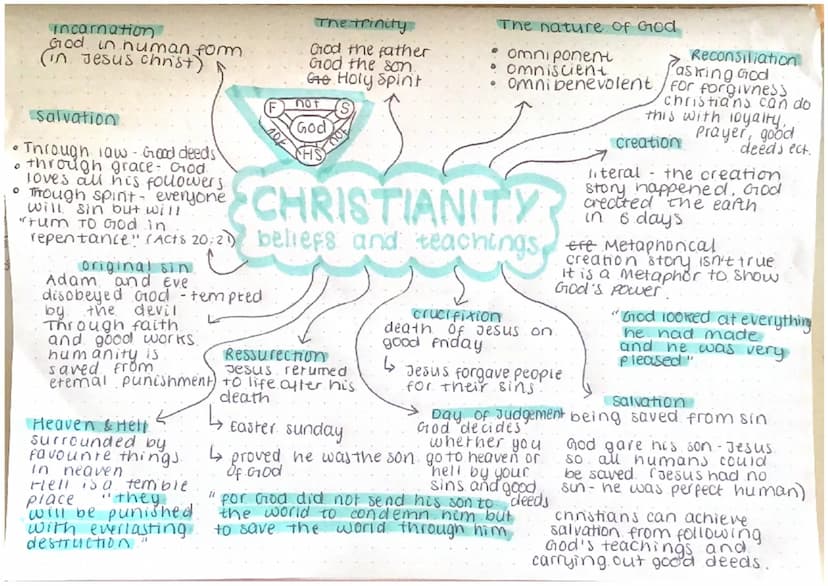 incarnation
God in human form
(in Jesus christ)
The trinity
God the father
God the son
Holy Spirit
F not S
God
not not
HS
The nature of God
• omniponent
• omniscient
• omnibenevolent
Reconsiliation
asking God
for forgivness
christians can do
this with loyalty,
prayer, good
deeds ect.
salvation
• Through law - Good deeds
• through grace - God
loves all his followers
• Though spirit - everyone
will sin but will
"turn TO God in
repentance" (Acts 20;21)
creation
literal - the creation
story happened, God
created the earth
in 6 days
Metaphorical
creation story isn't true
it is a metaphor to show
God's power.
"God looked at everything
he had made
and he was very
pleased"
CHRISTIANITY
beliefs and teachings
original sin
Adam and Eve
disobeyed God - tempted
by the devil
Through faith
and good works
humanity is
saved from
eternal punishment
Ressurection
Jesus returned
to life after his
death
↳ Easter sunday
↳ proved he was the son
of God
crucifixion
death of Jesus on
good friday
↳ Jesus forgave people
for their sins.
Day of Judgement
God decides
whether you
go to heaven or
hell by your
sins and good
deeds
salvation
being saved from sin
God gave his son - Jesus
so all humans could
be saved (Jesus had no
sin - he was perfect human)
christians can achieve
salvation from following
God's teachings and
carrying out good deeds.
Heaven & Hell
surrounded by
favourite things
in heaven
Hell is a terrible
place "they
will be punished
with everlasting
destruction"
"for God did not send his son to
the world to condemn him but
to save the world through him